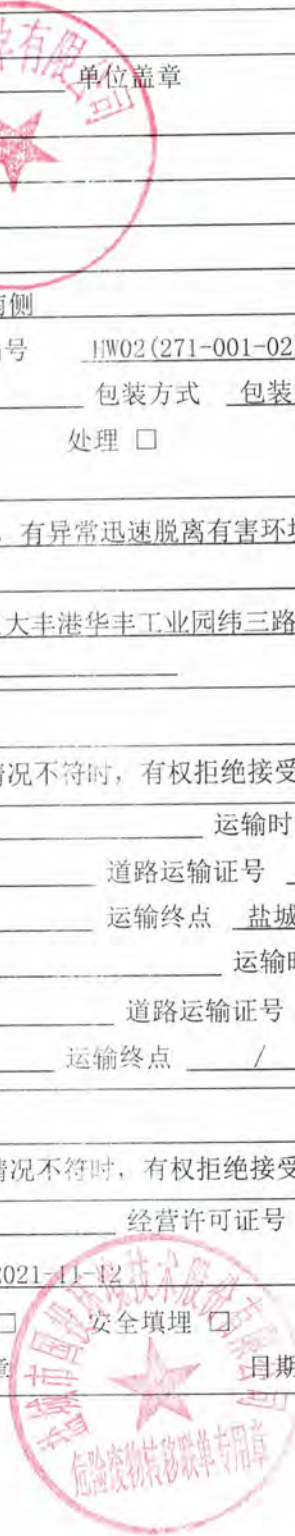 有限公司
单位盖章
侧
号 HW02(271-001-02
包装方式 包装
处理 □
，有异常迅速脱离有害环境
大丰港华丰工业园纬三路
情况不符时，有权拒绝接受
运输时
道路运输证号
运输终点 盐城
运输时
道路运输证号
运输终点 /
情况不符时，有权拒绝接受
经营许可证号
2021-11-12
□ 安全填埋 □
章 日期
盐城市国投环境技术股份有限公司
危险废物转移联单专用章